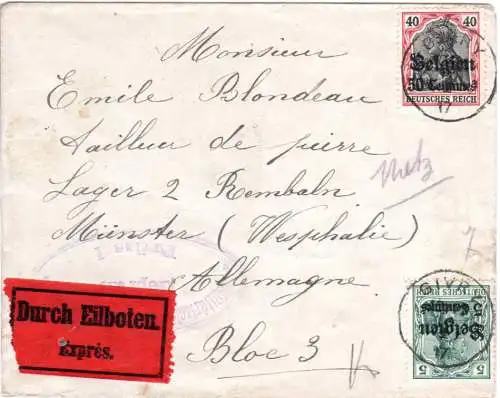 Monsieur
Emile Blondeau
tailleur de pierre
Lager 2 Rembaln
Münster (Wesphalie)
Allemagne
Bloc 3
Metz
Durch Eilboten.
Exprès.
40 40
Belgien
50 Centimes
DEUTSCHES REICH
17
Belgien
5 Centimes
DEUTSCHES REICH
5 5
17